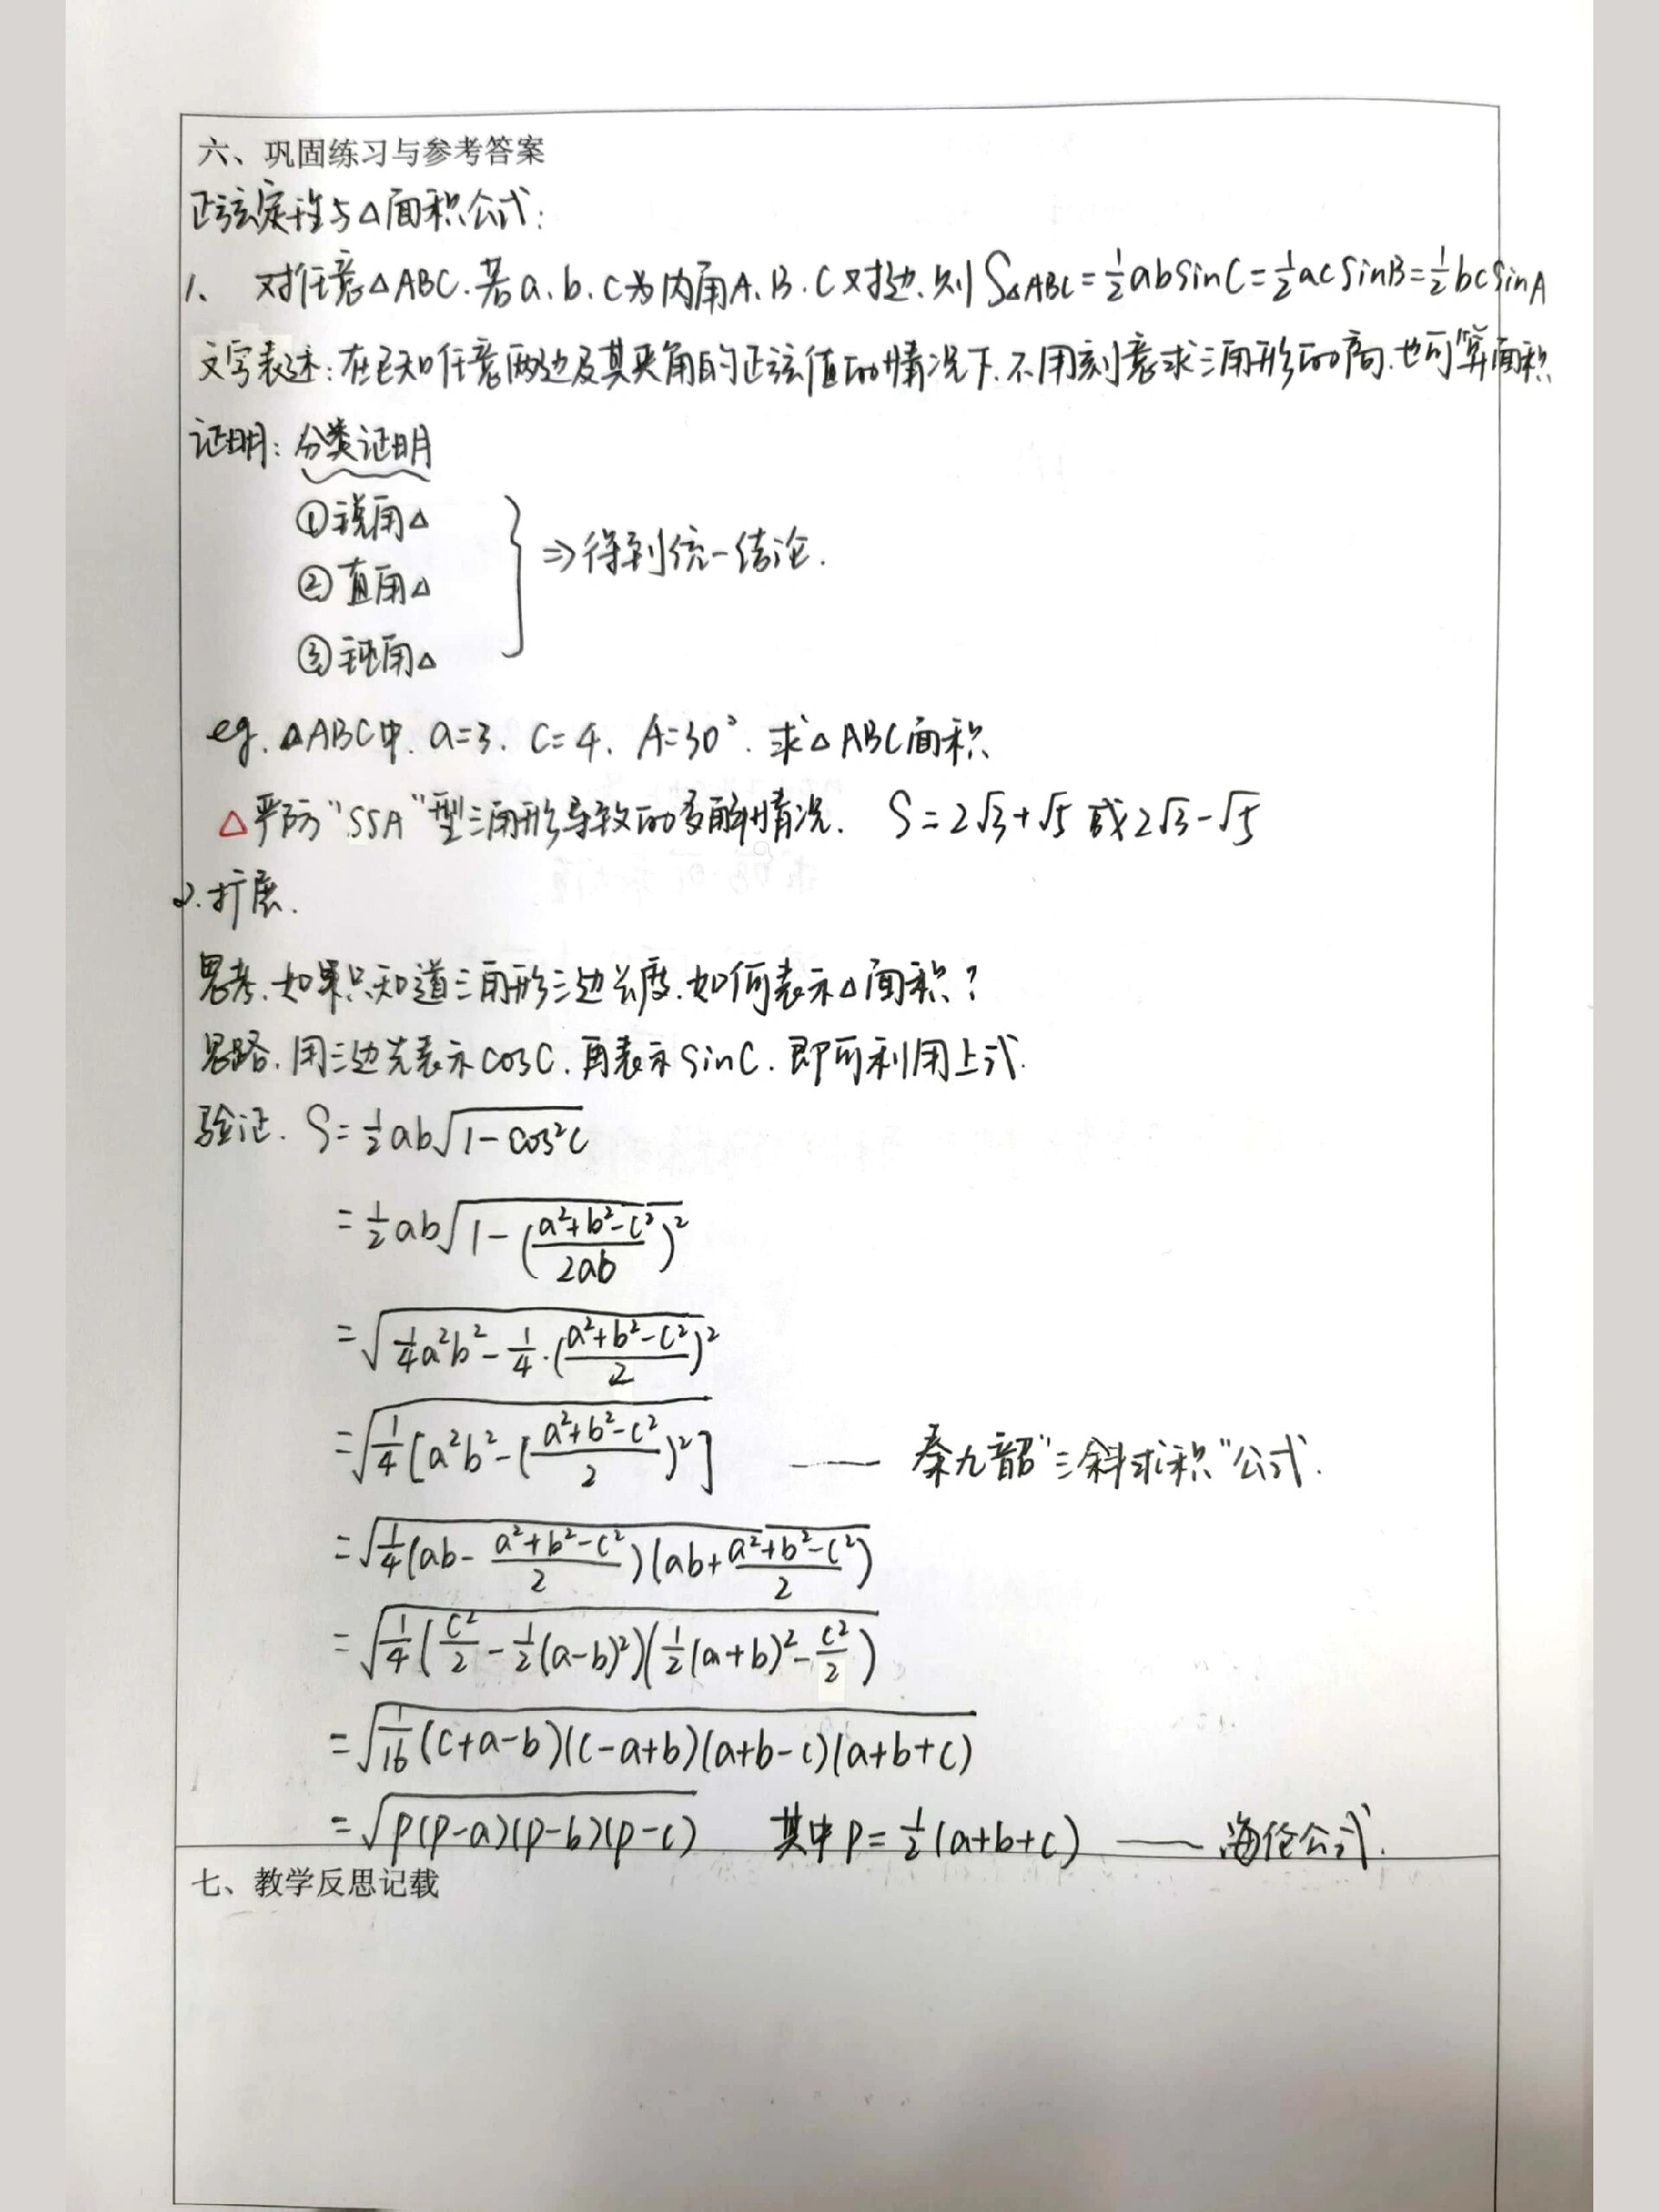 六、巩固练习与参考答案
正弦定理与△面积公式:
1、 对任意△ABC.若a、b、c为内角A、B、C对边.则 S△ABC=½absinC=½acsinB=½bcsinA
文字表述:在已知任意两边及其夹角的正弦值的情况下.不用刻意求三角形的高.也可算面积
证明:分类证明
①锐角△
②直角△
③钝角△
} ⇒得到统一结论.
eg. △ABC中. a=3. c=4. A=30°. 求△ABC面积
△严防"SSA"型三角形导致的多解情况. S=2√3+√5 或 2√3-√5
2.扩展.
思考.如果只知道三角形三边长度.如何表示△面积?
思路.用三边先表示cosC.再表示sinC.即可利用上式.
验证. S=½ab√(1-cos²C)
=½ab√(1-((a²+b²-c²)/2ab)²)
=√(¼a²b²-¼·((a²+b²-c²)/2)²)
=√(¼[a²b²-((a²+b²-c²)/2)²]) —— 秦九韶"三斜求积"公式.
=√(¼(ab-(a²+b²-c²)/2)(ab+(a²+b²-c²)/2))
=√(¼(c²/2-½(a-b)²)(½(a+b)²-c²/2))
=√(1/16(c+a-b)(c-a+b)(a+b-c)(a+b+c))
=√(p(p-a)(p-b)(p-c)) 其中p=½(a+b+c) —— 海伦公式.
七、教学反思记载